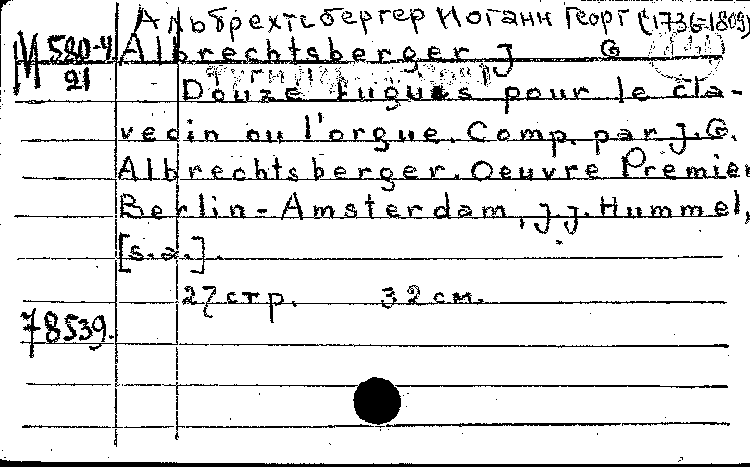 Альбрехтсбергер Иоганн Георг (1736-1809)
М 580-4
21
Albrechtsberger J G
Douze fugues pour le cla-
vecin ou l'orgue. Comp. par J.G.
Albrechtsberger. Oeuvre Premier
Berlin-Amsterdam, J.J. Hummel,
[s.a.].
27 стр. 32 см.
78539.